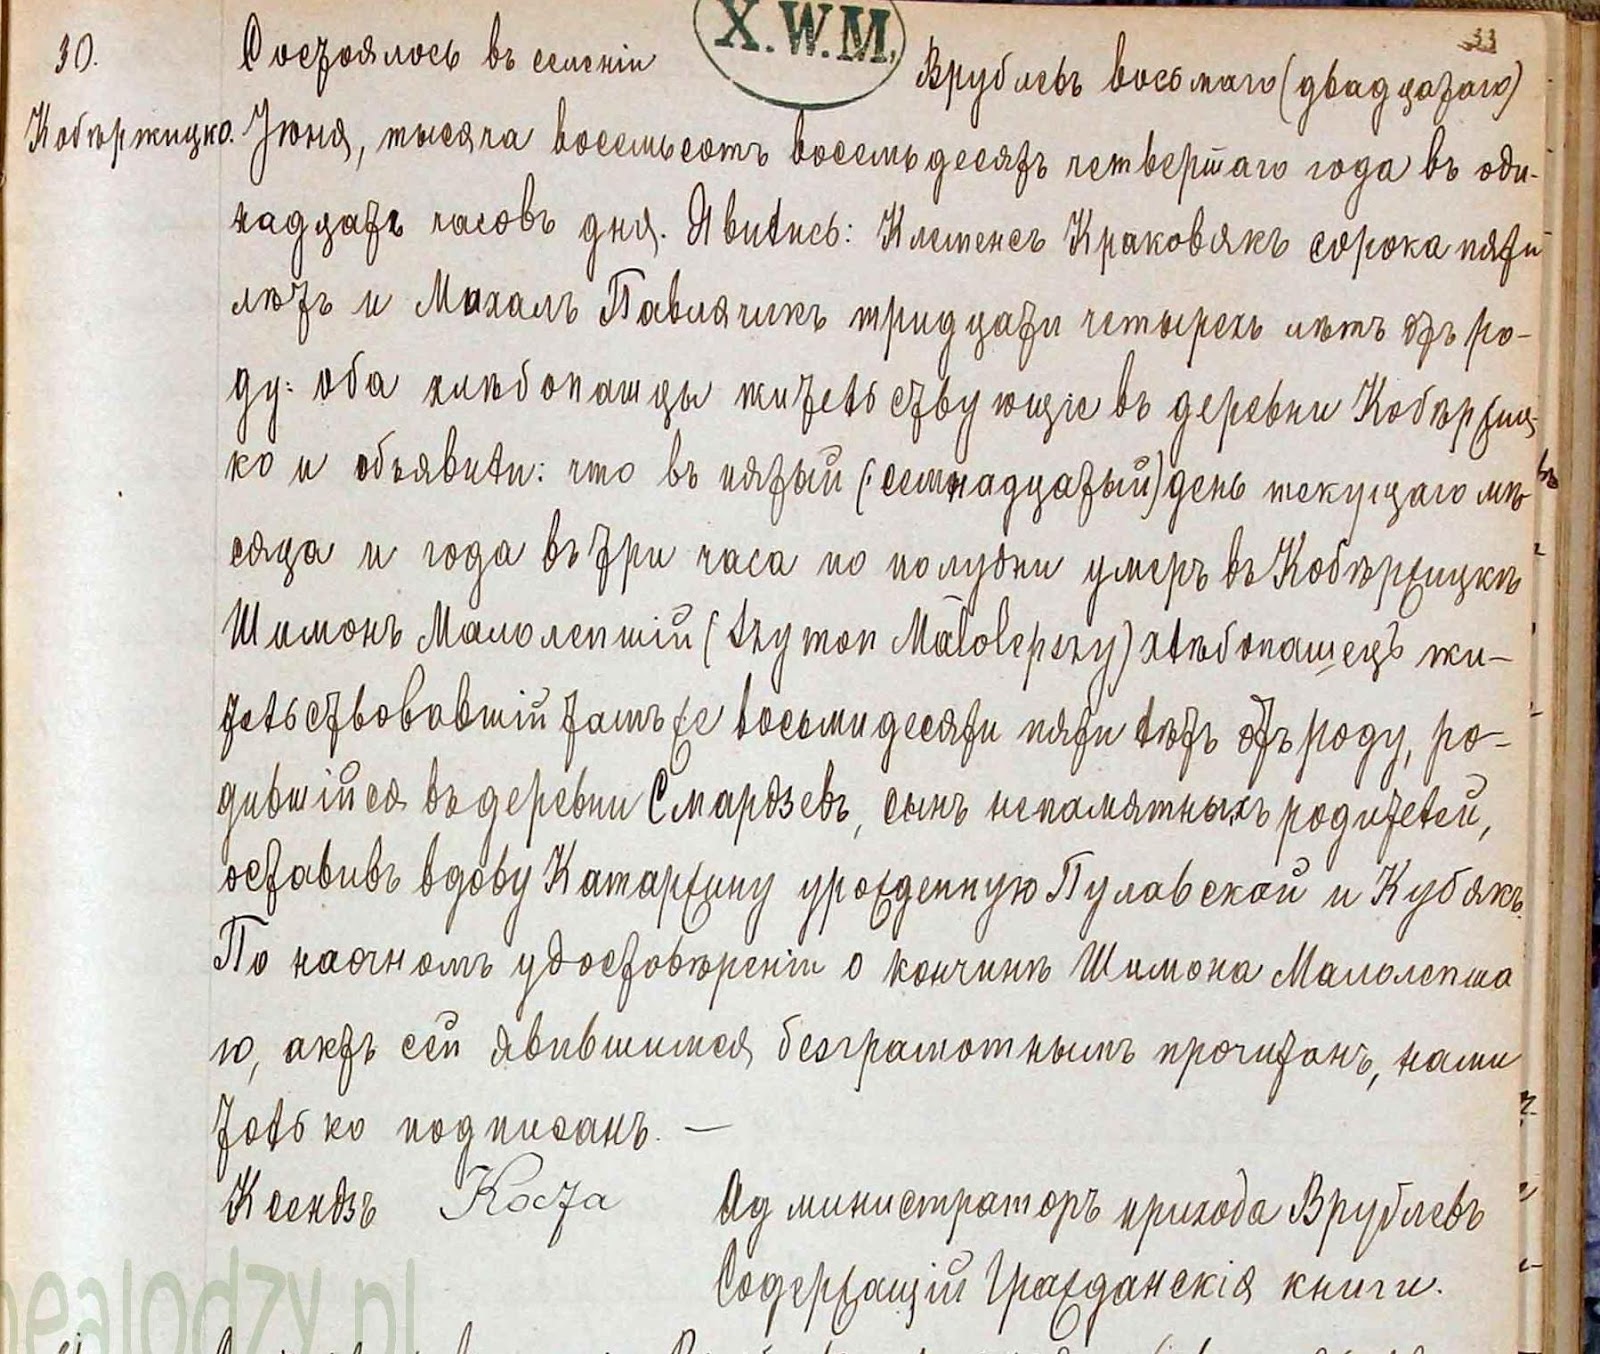 X.W.M.
33
30. Состоялось въ селеніи Врублевъ восьмаго (двадцатаго)
Кобѣржицко. Іюня, тысяча восемьсотъ восемьдесятъ четвертаго года въ оди-
надцать часовъ дня. Явились: Клеменсъ Краковякъ сорока пяти
лѣтъ и Михалъ Павлячикъ тридцати четырехъ лѣтъ отъ ро-
ду: оба хлѣбопашцы жительствующіе въ деревни Кобѣржиц-
ко и объявили: что въ пятый (: семнадцатый) день текущаго мѣ-
сяца и года въ три часа по полудни умеръ въ Кобѣржицкѣ
Шимонъ Малолепшій (Szymon Małolepszy) хлѣбопашецъ жи-
тельствовавшій тамъ же восьмидесяти пяти лѣтъ отъ роду, ро-
дившійся въ деревни Смардзевъ, сынъ непамятныхъ родителей,
оставивъ вдову Катаржину урожденную Пулавской и Кубякъ.
По наочномъ удостовѣреніи о кончинѣ Шимона Малолепша
го, актъ сей явившимся безграмотнымъ прочитанъ, нами
только подписанъ. —
Ксендзъ Коста Администраторъ прихода Врублевъ
Содержащій Гражданскія книги.
nealodzy.pl